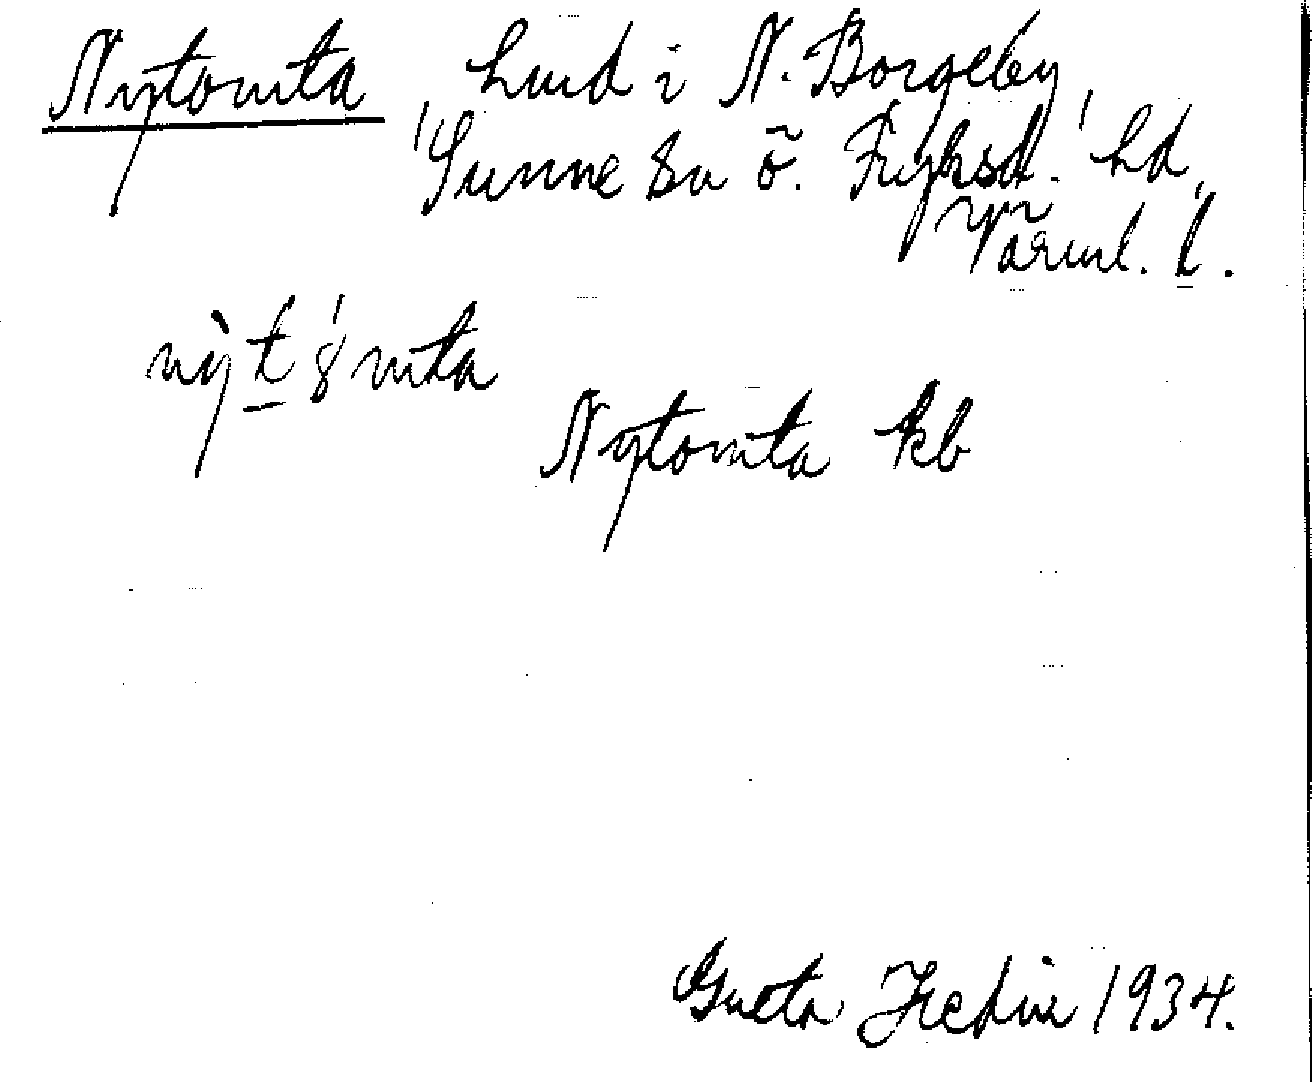 Nytomta, lund i N. Borgeby,
Sunne sn Ö. Fryksd. hd,
Värml. l.
Nytomta kb
Greta Hedin 1934.